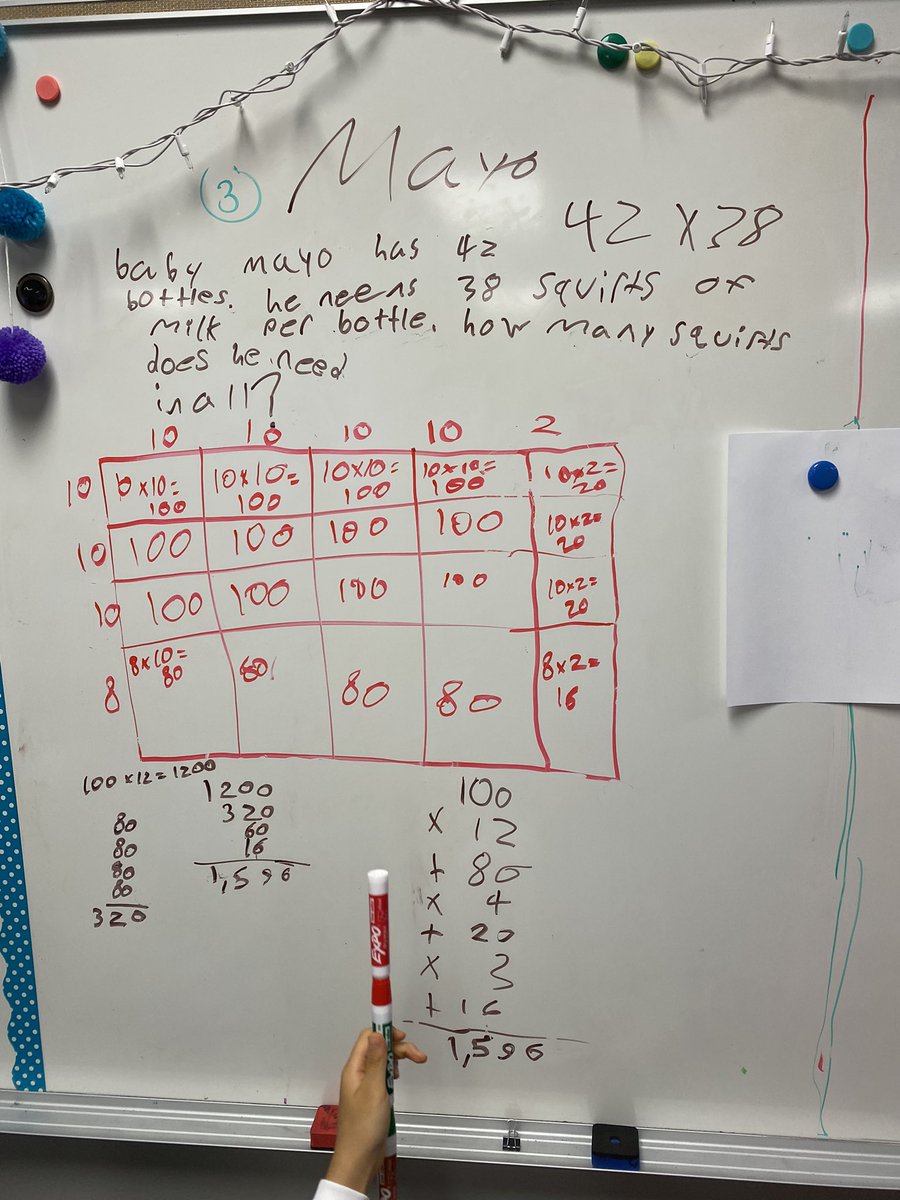 3 Mayo
42 x 38
baby mayo has 42
bottles. he neens 38 squirts of
milk per bottle. how many squirts
does he need
in all?
10 10 10 10 2
10 0x10=100 10x10=100 10x10=100 10x10=100 10x2=20
10 100 100 100 100 10x2=20
10 100 100 100 100 10x2=20
8 8x10=80 80 80 80 8x2=16
100 x 12 = 1200
80
80
80
80
320
1200
320
60
16
1,596
100
x 12
+ 80
x 4
+ 20
x 3
+ 16
1,596
EXPO